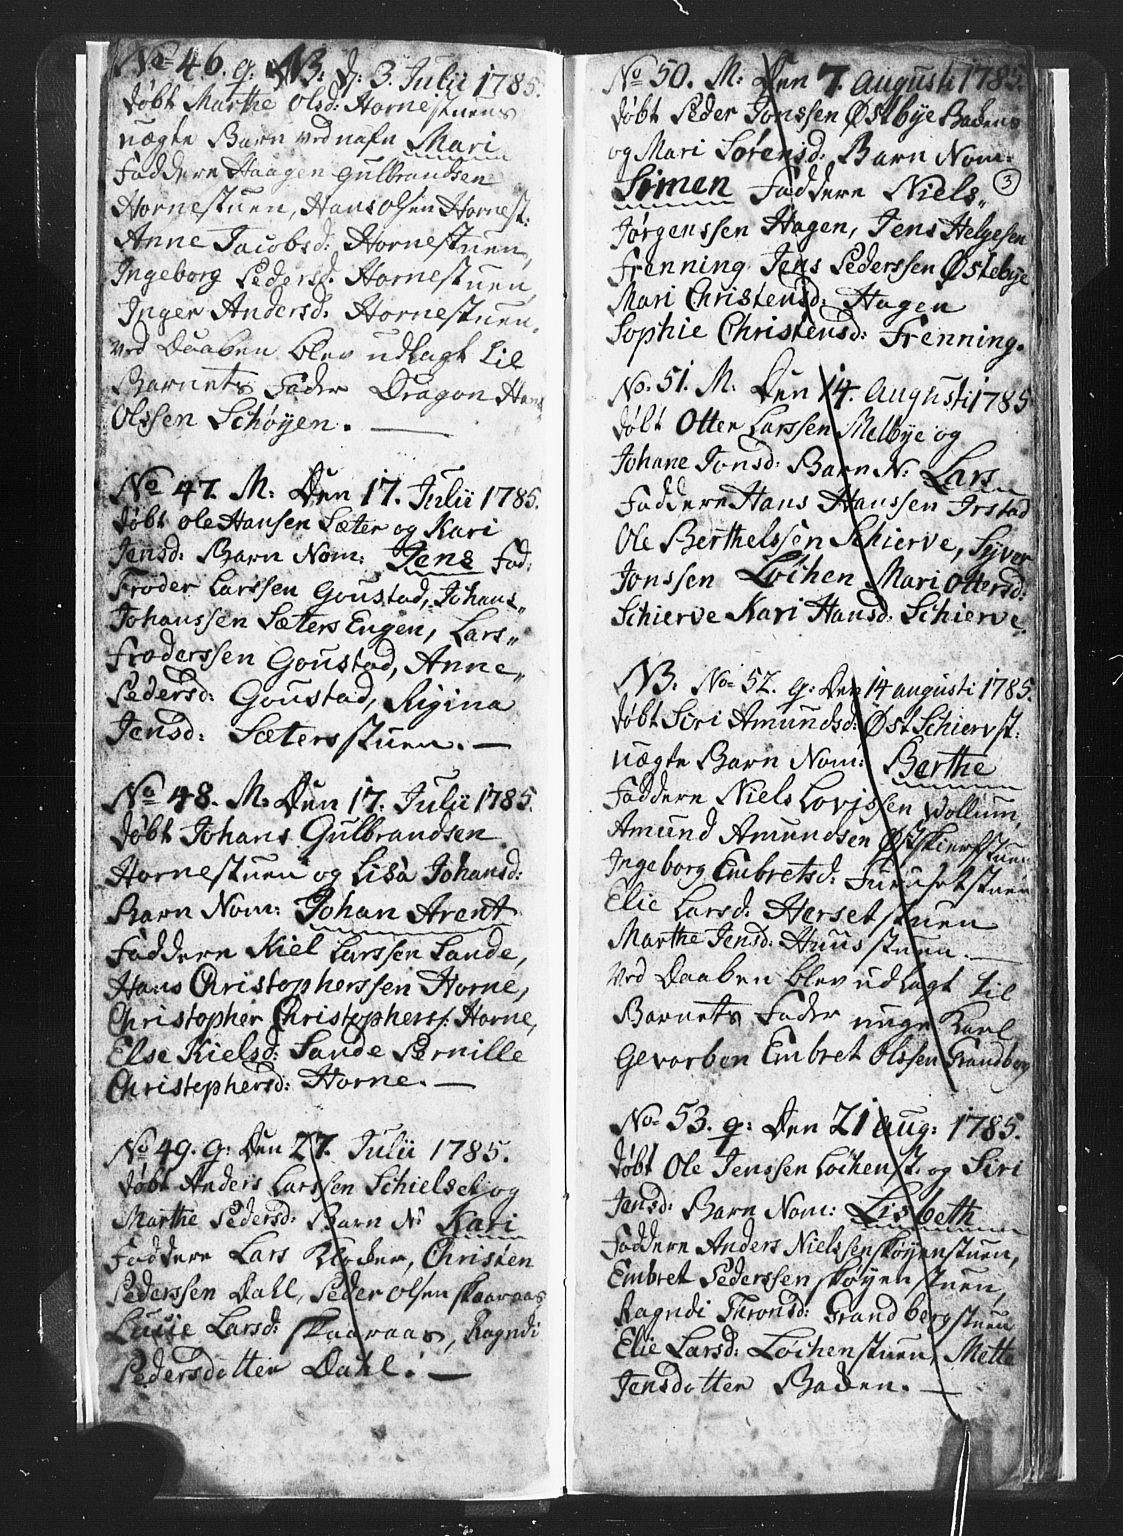 No 46. q. NB. d: 3. Julii 1785.
døbt Marthe Olsd: Hornestuens
uægte Barn ved nafn Mari
Faddere Haagen Gulbrandsen
Hornestuen, Hans Olsen Hornest:
Anne Jacobsd: Hornestuen,
Ingeborg Pedersd: Hornestuen,
Inger Andersd: Hornestuen.
ved Daaben blev udlagt til
Barnets Fader Dragon Hans
Olssen Schøyen.
No 47. M: Den 17. Julii 1785.
døbt Ole Hansen Sæter og Kari
Jensd: Barn Nom: Jens Fad:
Froder Larssen Goustad, Johans„
Johanssen Sæters Engen, Lars„
Froderssen Goustad, Anne„
Pedersd: Goustad, Rigina
Jensd: Sætersstuen. —
No 48. M. Den 17. Julii 1785.
døbt Johans Gulbrandsen
Hornestuen og Lisa Johansd:
Barn Nom: Johan Arent
Faddere Kiel Larssen Sande,
Hans Christopherssen Horne,
Christopher Christophers: Horne,
Else Kielsd: Sande Pernille
Christophersd: Horne. —
No 49. q: Den 27. Julii 1785.
døbt Anders Larssen Schielset og
Marthe Pedersd: Barn N: Kari
Faddere Lars Kloder, Christen
Pederssen Dahl, Peder Olsen Skaaraas
Lucie Larsd: Skaaraas, Ragndi
Pedersdotter Dahl. —
No 50. M: Den 7 Augusti 1785.
døbt Peder Jonssen Østbye Badens
og Mari Sørensd: Barn Nom:
Simen Faddere Niels„ 3
Jørgenssen Hagen, Jens Helgesen
Frenning Jens Pederssen Østebye
Mari Christensd: Hagen
Sophie Christensd: Frenning.
No. 51. M. Den 14. Augusti 1785
døbt Otter Larssen Melbye og
Johane Jonsd: Barn N: Lars
Faddere Hans Hanssen Irstad
Ole Berthelssen Schierve, Syver
Jonssen Løchen Mari Ottersd:
Schierve Kari Hansd: Schierve.
NB. No 52. q: Den 14 augusti 1785.
døbt Siri Amundsd: Øst Schiervst:
uægte Barn Nom: Berthe
Faddere Niels Lovissen Wollum,
Amund Amundsen Østskierfstuen
Ingeborg Embretsd: Furusetstuen
Elie Larsd: Hersetstuen
Marthe Jensd: Huusstuen. —
Ved Daaben blev udlagt til
Barnets Fader unge Karl
Gevorben Embret Olssen Grandberg
No 53. q: Den 21 aug: 1785.
døbt Ole Jenssen Løchenst. og Siri
Jensd: Barn Nom: Lisbeth
Faddere Anders Nielssen Skøyenstuen,
Embret Pederssen Skøyenstuen,
Ragndi Thronsd: Grandbergstuen
Elie Larsd: Løchenstuen, Mette
Jensdotter Baden. —